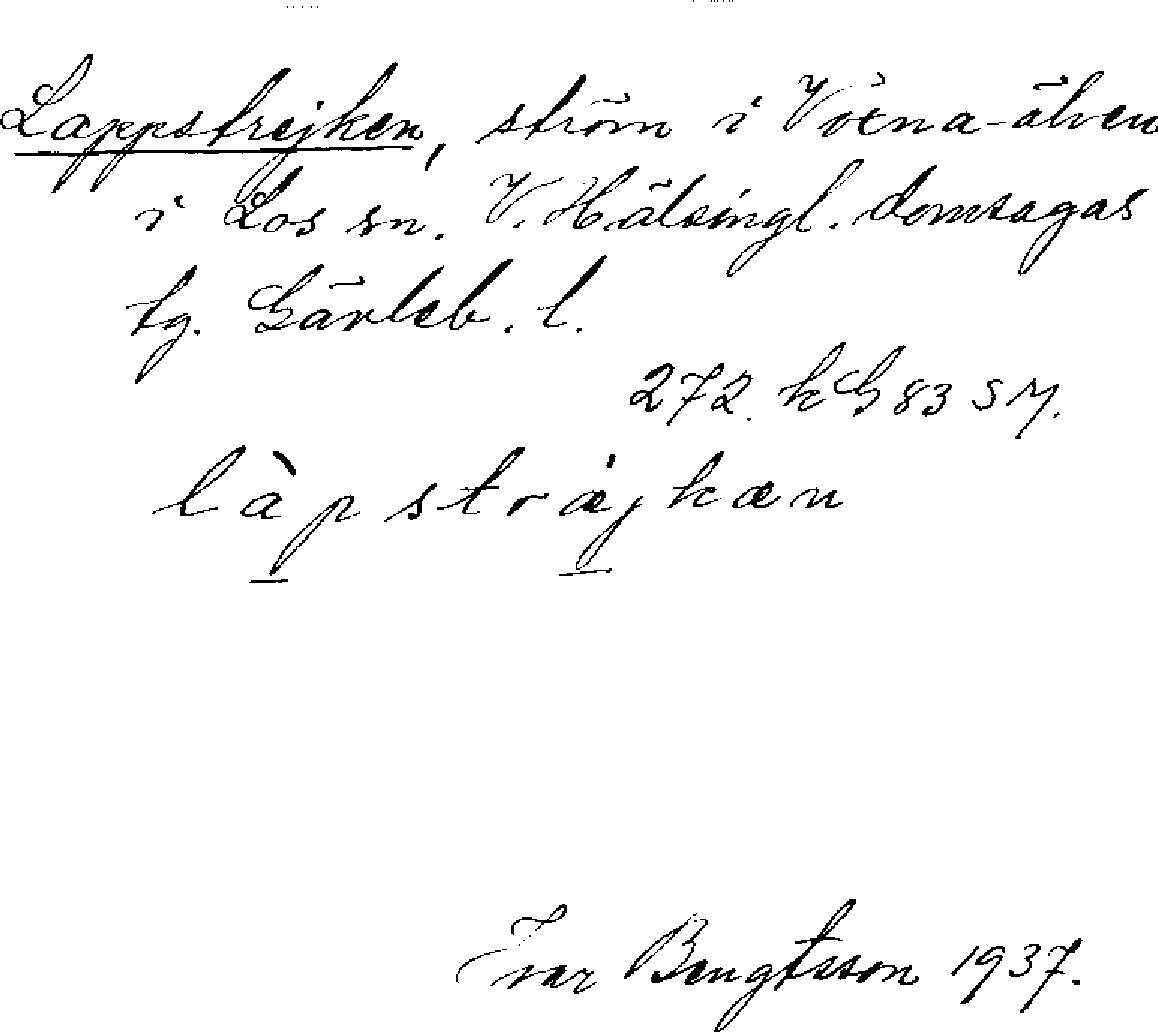 Lappstrejken, ström i Voxna-älven
i Los sn. V. Hälsingl. domsagas
tg. Gävleb. l.
272. kG 83 SM.
làpstræjkæn
Ivar Bengtsson 1937.